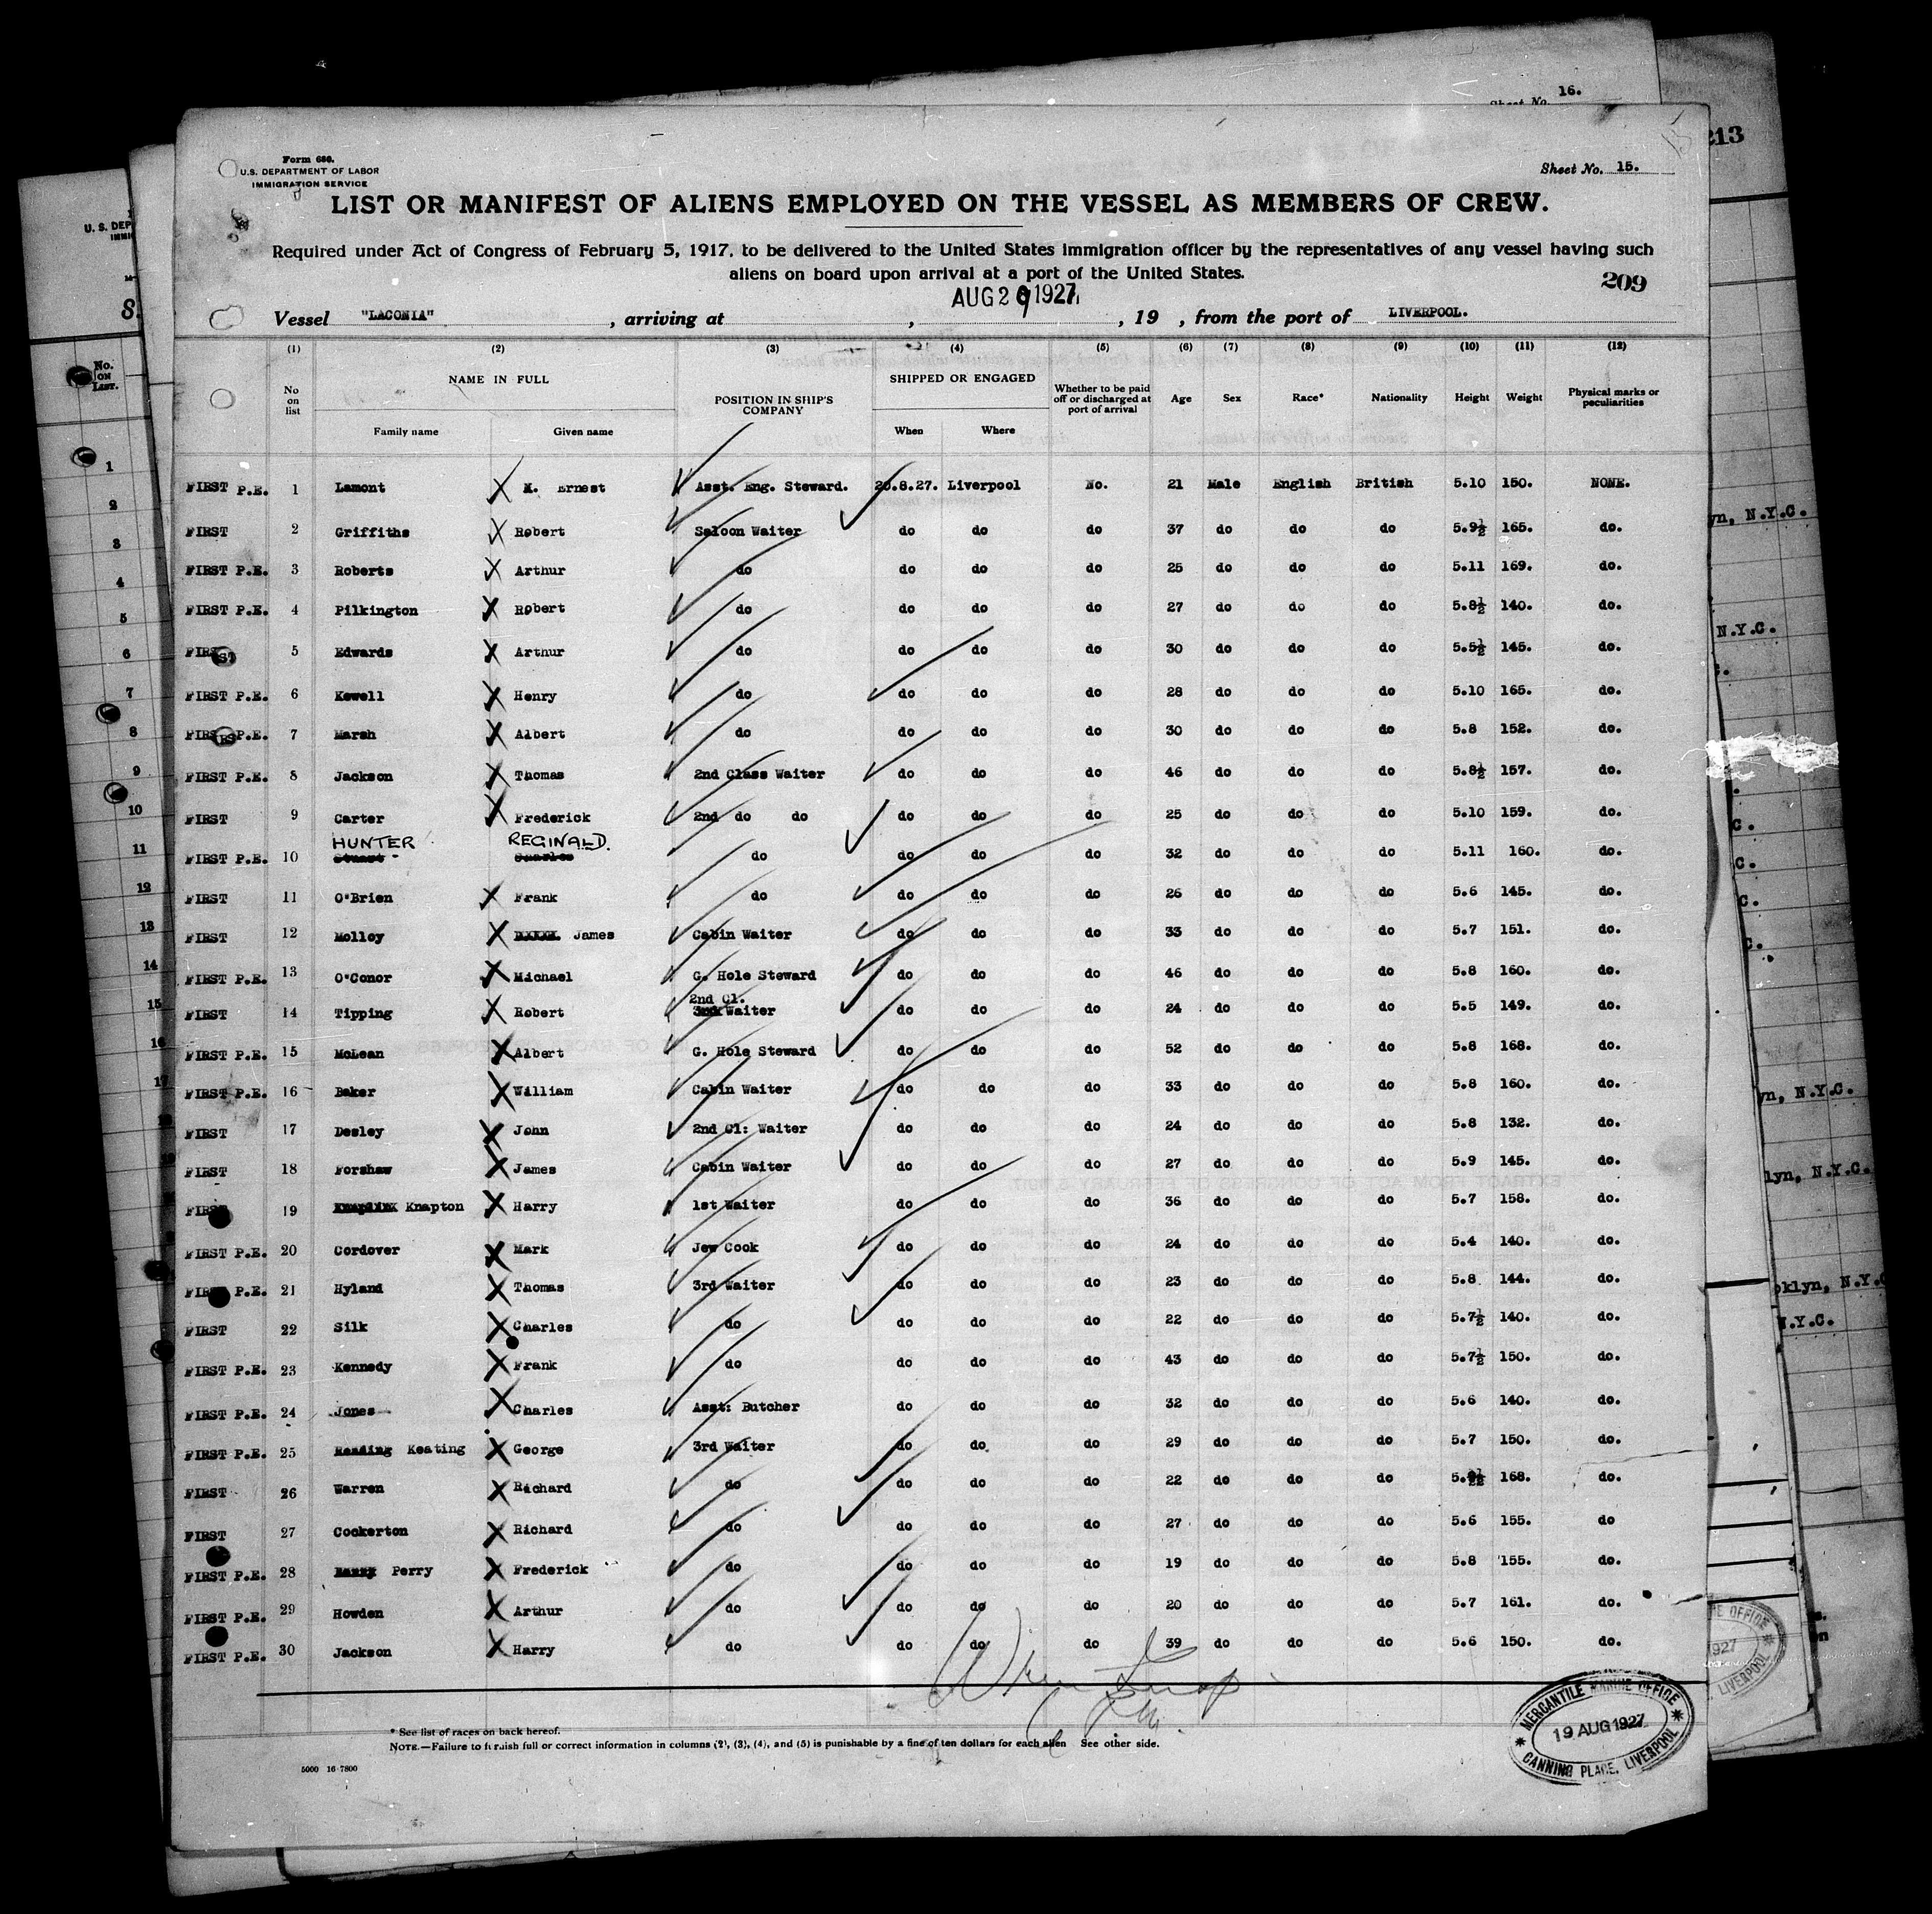 16.
Sheet No.
213
Form 686.
U.S. DEPARTMENT OF LABOR
IMMIGRATION SERVICE
Sheet No. 15.
LIST OR MANIFEST OF ALIENS EMPLOYED ON THE VESSEL AS MEMBERS OF CREW.
Required under Act of Congress of February 5, 1917, to be delivered to the United States immigration officer by the representatives of any vessel having such
aliens on board upon arrival at a port of the United States.
209
AUG 2 9 1927
Vessel "LACONIA" , arriving at , , 19 , from the port of LIVERPOOL.
(1) (2) (3) (4) (5) (6) (7) (8) (9) (10) (11) (12)
No on list NAME IN FULL Family name Given name POSITION IN SHIP'S COMPANY SHIPPED OR ENGAGED When Where Whether to be paid off or discharged at port of arrival Age Sex Race* Nationality Height Weight Physical marks or peculiarities
FIRST P.E. 1 Lamont Ernest Asst. Eng. Steward. 20.8.27. Liverpool No. 21 Male English British 5.10 150. NONE.
FIRST 2 Griffiths Robert Saloon Waiter do do do 37 do do do 5.9½ 165. do.
FIRST P.E. 3 Roberts Arthur do do do do 25 do do do 5.11 169. do.
FIRST P.E. 4 Pilkington Robert do do do do 27 do do do 5.8½ 140. do.
FIRST 5 Edwards Arthur do do do do 30 do do do 5.5½ 145. do.
FIRST P.E. 6 Kewell Henry do do do do 28 do do do 5.10 165. do.
FIRST P.E. 7 Marsh Albert do do do do 30 do do do 5.8 152. do.
FIRST P.E. 8 Jackson Thomas 2nd Class Waiter do do do 46 do do do 5.8½ 157. do.
FIRST 9 Carter Frederick 2nd do do do do do 25 do do do 5.10 159. do.
HUNTER REGINALD.
FIRST P.E. 10 Stuart Charles do do do do 32 do do do 5.11 160. do.
FIRST 11 O'Brien Frank do do do do 26 do do do 5.6 145. do.
FIRST 12 Molloy James Cabin Waiter do do do 33 do do do 5.7 151. do.
FIRST P.E. 13 O'Conor Michael G. Hole Steward do do do 46 do do do 5.8 160. do.
2nd Cl.
FIRST 14 Tipping Robert 3rd Waiter do do do 24 do do do 5.5 149. do.
FIRST P.E. 15 McLean Albert G. Hole Steward do do do 52 do do do 5.8 168. do.
FIRST P.E. 16 Baker William Cabin Waiter do do do 33 do do do 5.8 160. do.
FIRST 17 Desley John 2nd Cl: Waiter do do do 24 do do do 5.8 132. do.
FIRST 18 Forshaw James Cabin Waiter do do do 27 do do do 5.9 145. do.
FIRST 19 Knapton Harry 1st Waiter do do do 36 do do do 5.7 158. do.
FIRST P.E. 20 Cordover Mark Jew Cook do do do 24 do do do 5.4 140. do.
FIRST P.E. 21 Hyland Thomas 3rd Waiter do do do 23 do do do 5.8 144. do.
FIRST 22 Silk Charles do do do do 22 do do do 5.7½ 140. do.
FIRST P.E. 23 Kennedy Frank do do do do 43 do do do 5.7½ 150. do.
FIRST P.E. 24 Jones Charles Asst: Butcher do do do 32 do do do 5.6 140. do.
FIRST P.E. 25 Keating George 3rd Waiter do do do 29 do do do 5.7 150. do.
FIRST 26 Warren Richard do do do do 22 do do do 168. do.
FIRST 27 Cockerton Richard do do do do 27 do do do 5.6 155. do
FIRST P.E. 28 Perry Frederick do do do do 19 do do do 5.8 155. do.
FIRST P.E. 29 Howden Arthur do do do do 20 do do do 5.7 161. do.
FIRST P.E. 30 Jackson Harry do do do do 39 do do do 5.6 150. do.
* See list of races on back hereof.
NOTE.—Failure to furnish full or correct information in columns (2), (3), (4), and (5) is punishable by a fine of ten dollars for each alien See other side.
5000 16-7800
MERCANTILE MARINE OFFICE
19 AUG 1927
CANNING PLACE, LIVERPOOL